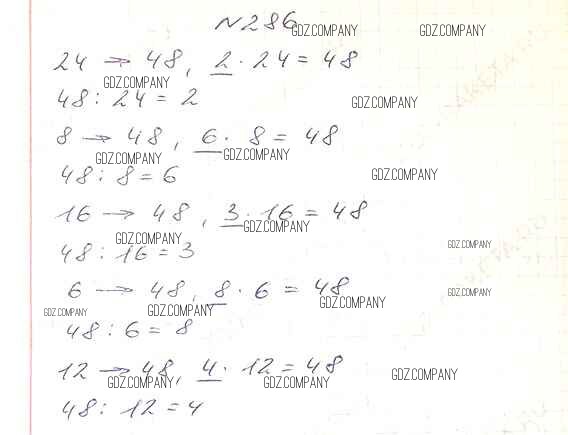 №286
GDZ.COMPANY GDZ.COMPANY
24 → 48, 2 · 24 = 48
GDZ.COMPANY
48 : 24 = 2
GDZ.COMPANY
8 → 48, 6 · 8 = 48
GDZ.COMPANY GDZ.COMPANY
48 : 8 = 6
GDZ.COMPANY
16 → 48, 3 · 16 = 48
GDZ.COMPANY
GDZ.COMPANY GDZ.COMPANY
48 : 16 = 3
6 → 48, 8 · 6 = 48
GDZ.COMPANY
GDZ.COMPANY GDZ.COMPANY GDZ.COMPANY
48 : 6 = 8
12 → 48, 4 · 12 = 48
GDZ.COMPANY GDZ.COMPANY GDZ.COMPANY
48 : 12 = 4